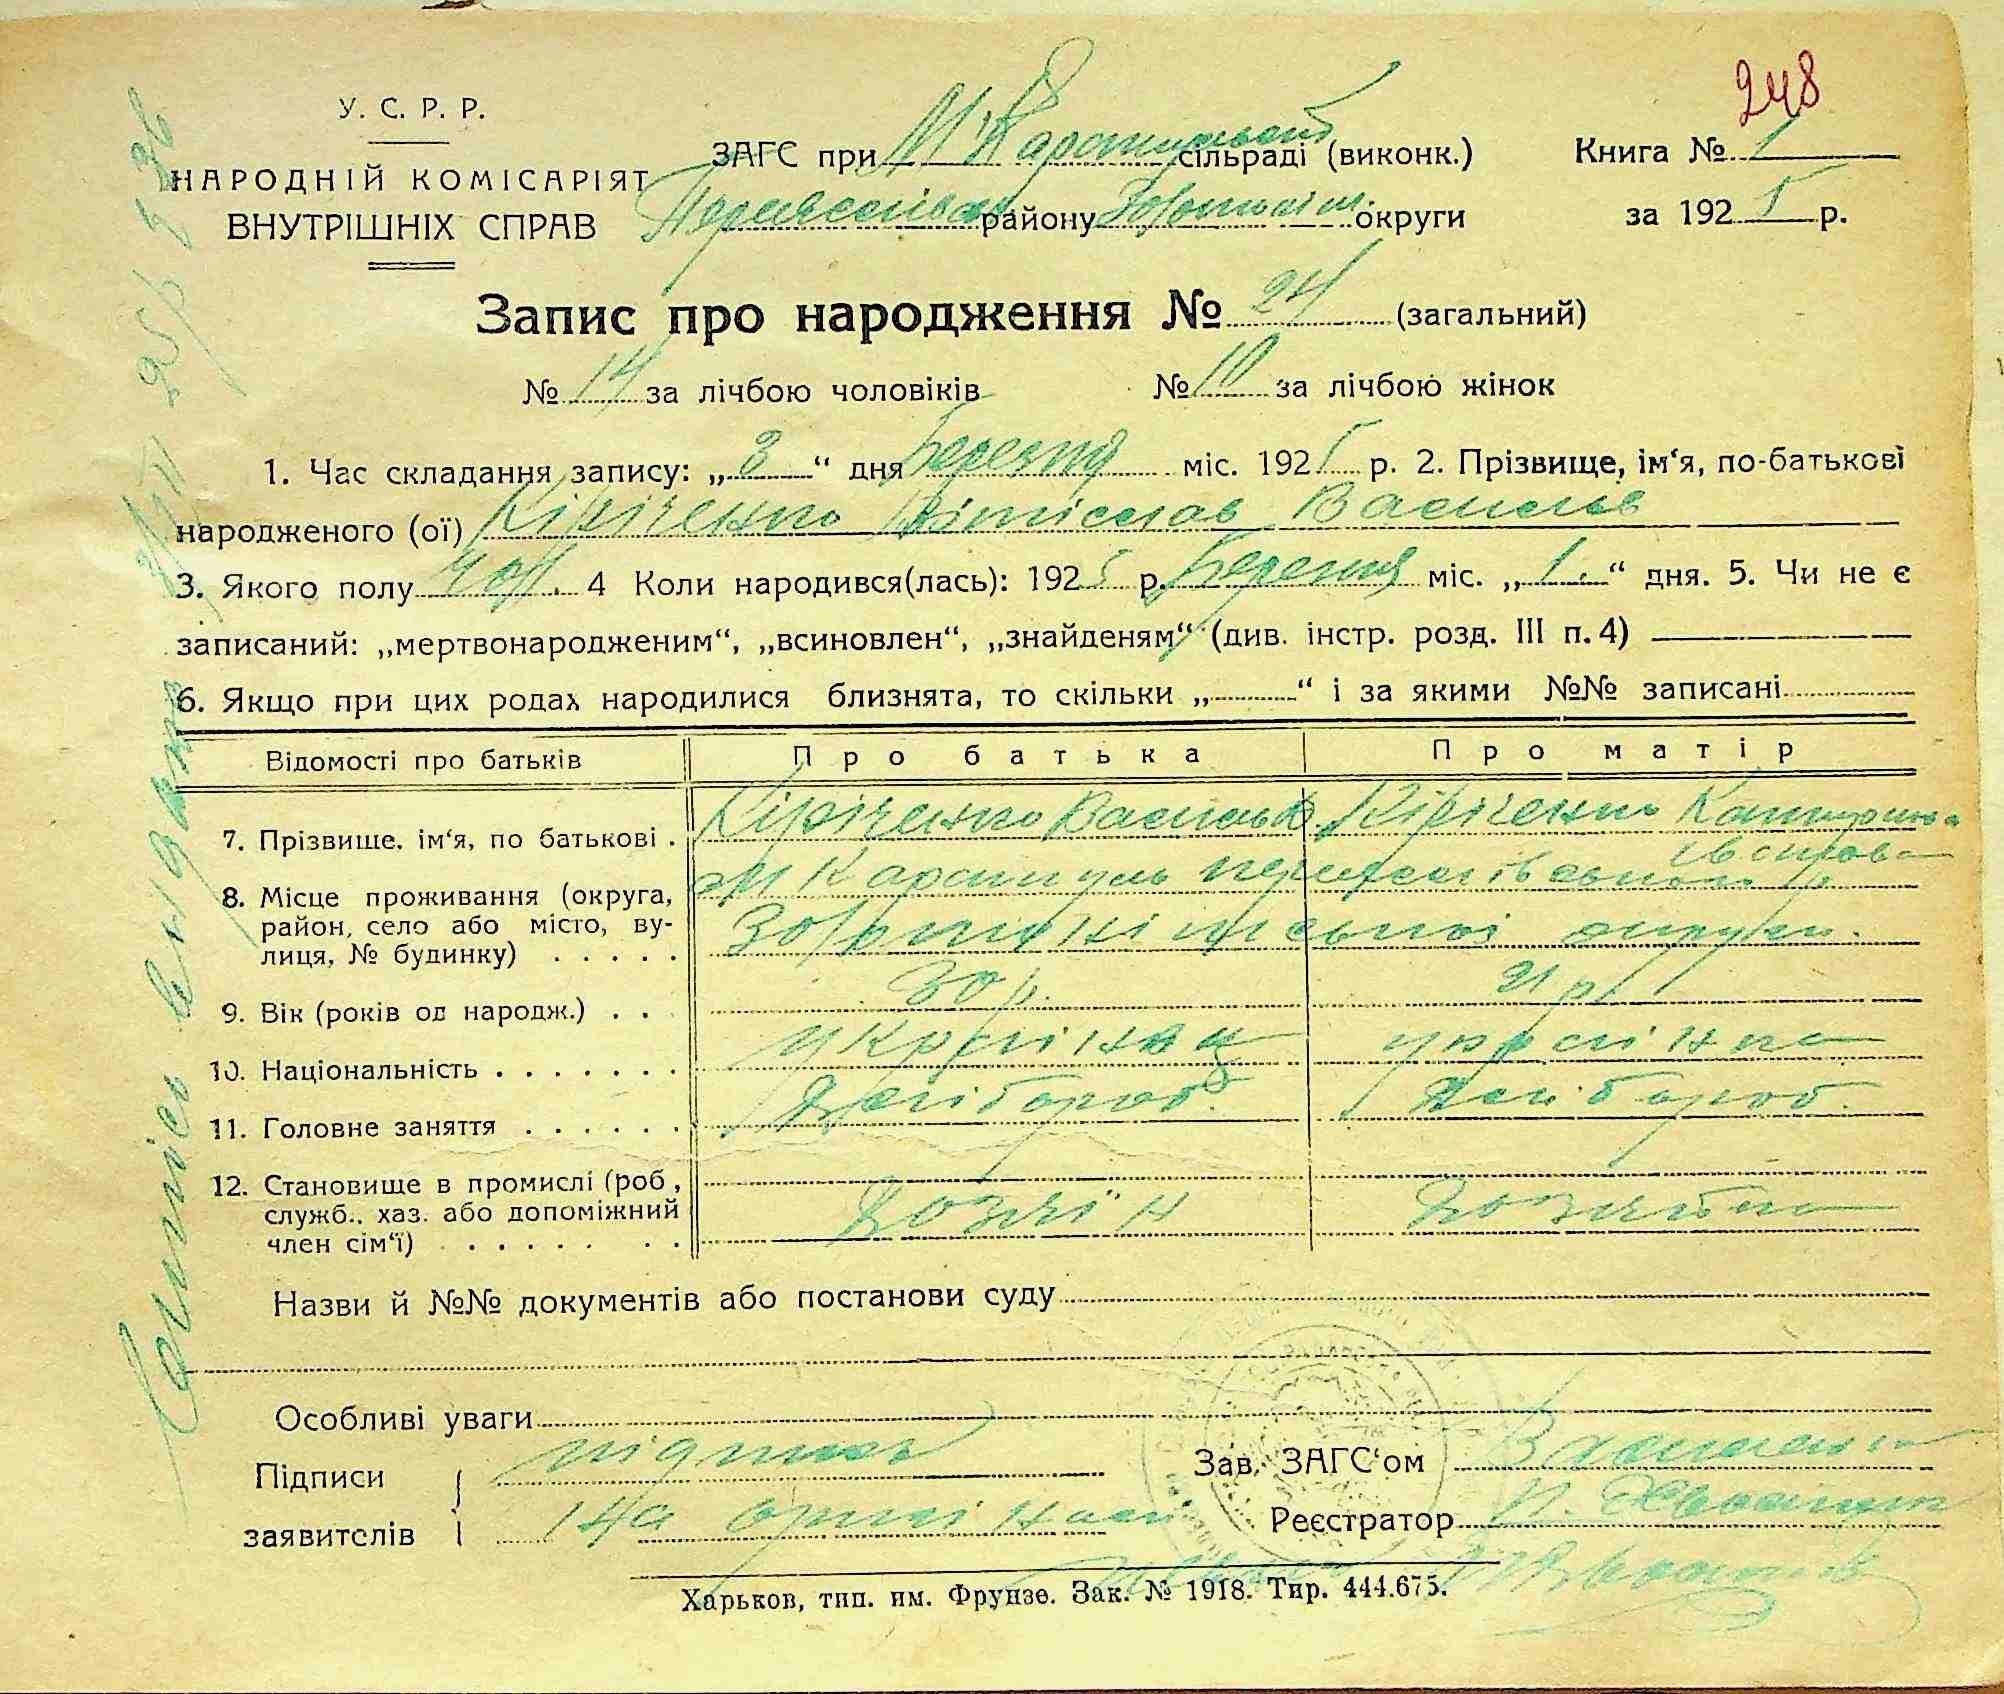 248
У. С. Р. Р.
НАРОДНІЙ КОМІСАРІЯТ
ВНУТРІШНІХ СПРАВ
ЗАГС при М Каратульской сільраді (виконк.)
Переяслівськ району Золотоніш. округи
Книга № 1
за 1925 р.
Запис про народження № 24 (загальний)
№ 14 за лічбою чоловіків № 10 за лічбою жінок
1. Час складання запису: „3“ дня Березня міс. 1925 р. 2. Прізвище, ім‘я, по-батькові
народженого (ої) Кіріченко Вітіслав Васильів
3. Якого полу чол. 4 Коли народився(лась): 1925 р. Березня міс. „1.“ дня. 5. Чи не є
записаний: „мертвонародженим“, „всиновлен“, „знайденям“ (див. інстр. розд. III п. 4)
6. Якщо при цих родах народилися близнята, то скільки „ “ і за якими №№ записані
Відомості про батьків Про батька Про матір
7. Прізвище, ім‘я, по батькові . Кіріченко Васильів Кіріченко Катирина
8. Місце проживання (округа, М Каратуль переяслівської р
район, село або місто, ву- Золотонішської округи.
лиця, № будинку) . . . . .
9. Вік (років од народж.) . . . 30 р. 21 р
10. Національність . . . . . . . україназ українка
11. Головне заняття . . . . . . Хлібороб. Хлібороб.
12. Становище в промислі (роб.,
служб., хаз. або допоміжний Хозяїн Хозяйка
член сім‘ї) . . . . . . . .
Назви й №№ документів або постанови суду
Особливі уваги
Підписи
заявителів
підпись
на оригіналі
Зав. ЗАГС‘ом
Реєстратор
Харьков, тип. им. Фрунзе. Зак. № 1918. Тир. 444.675.